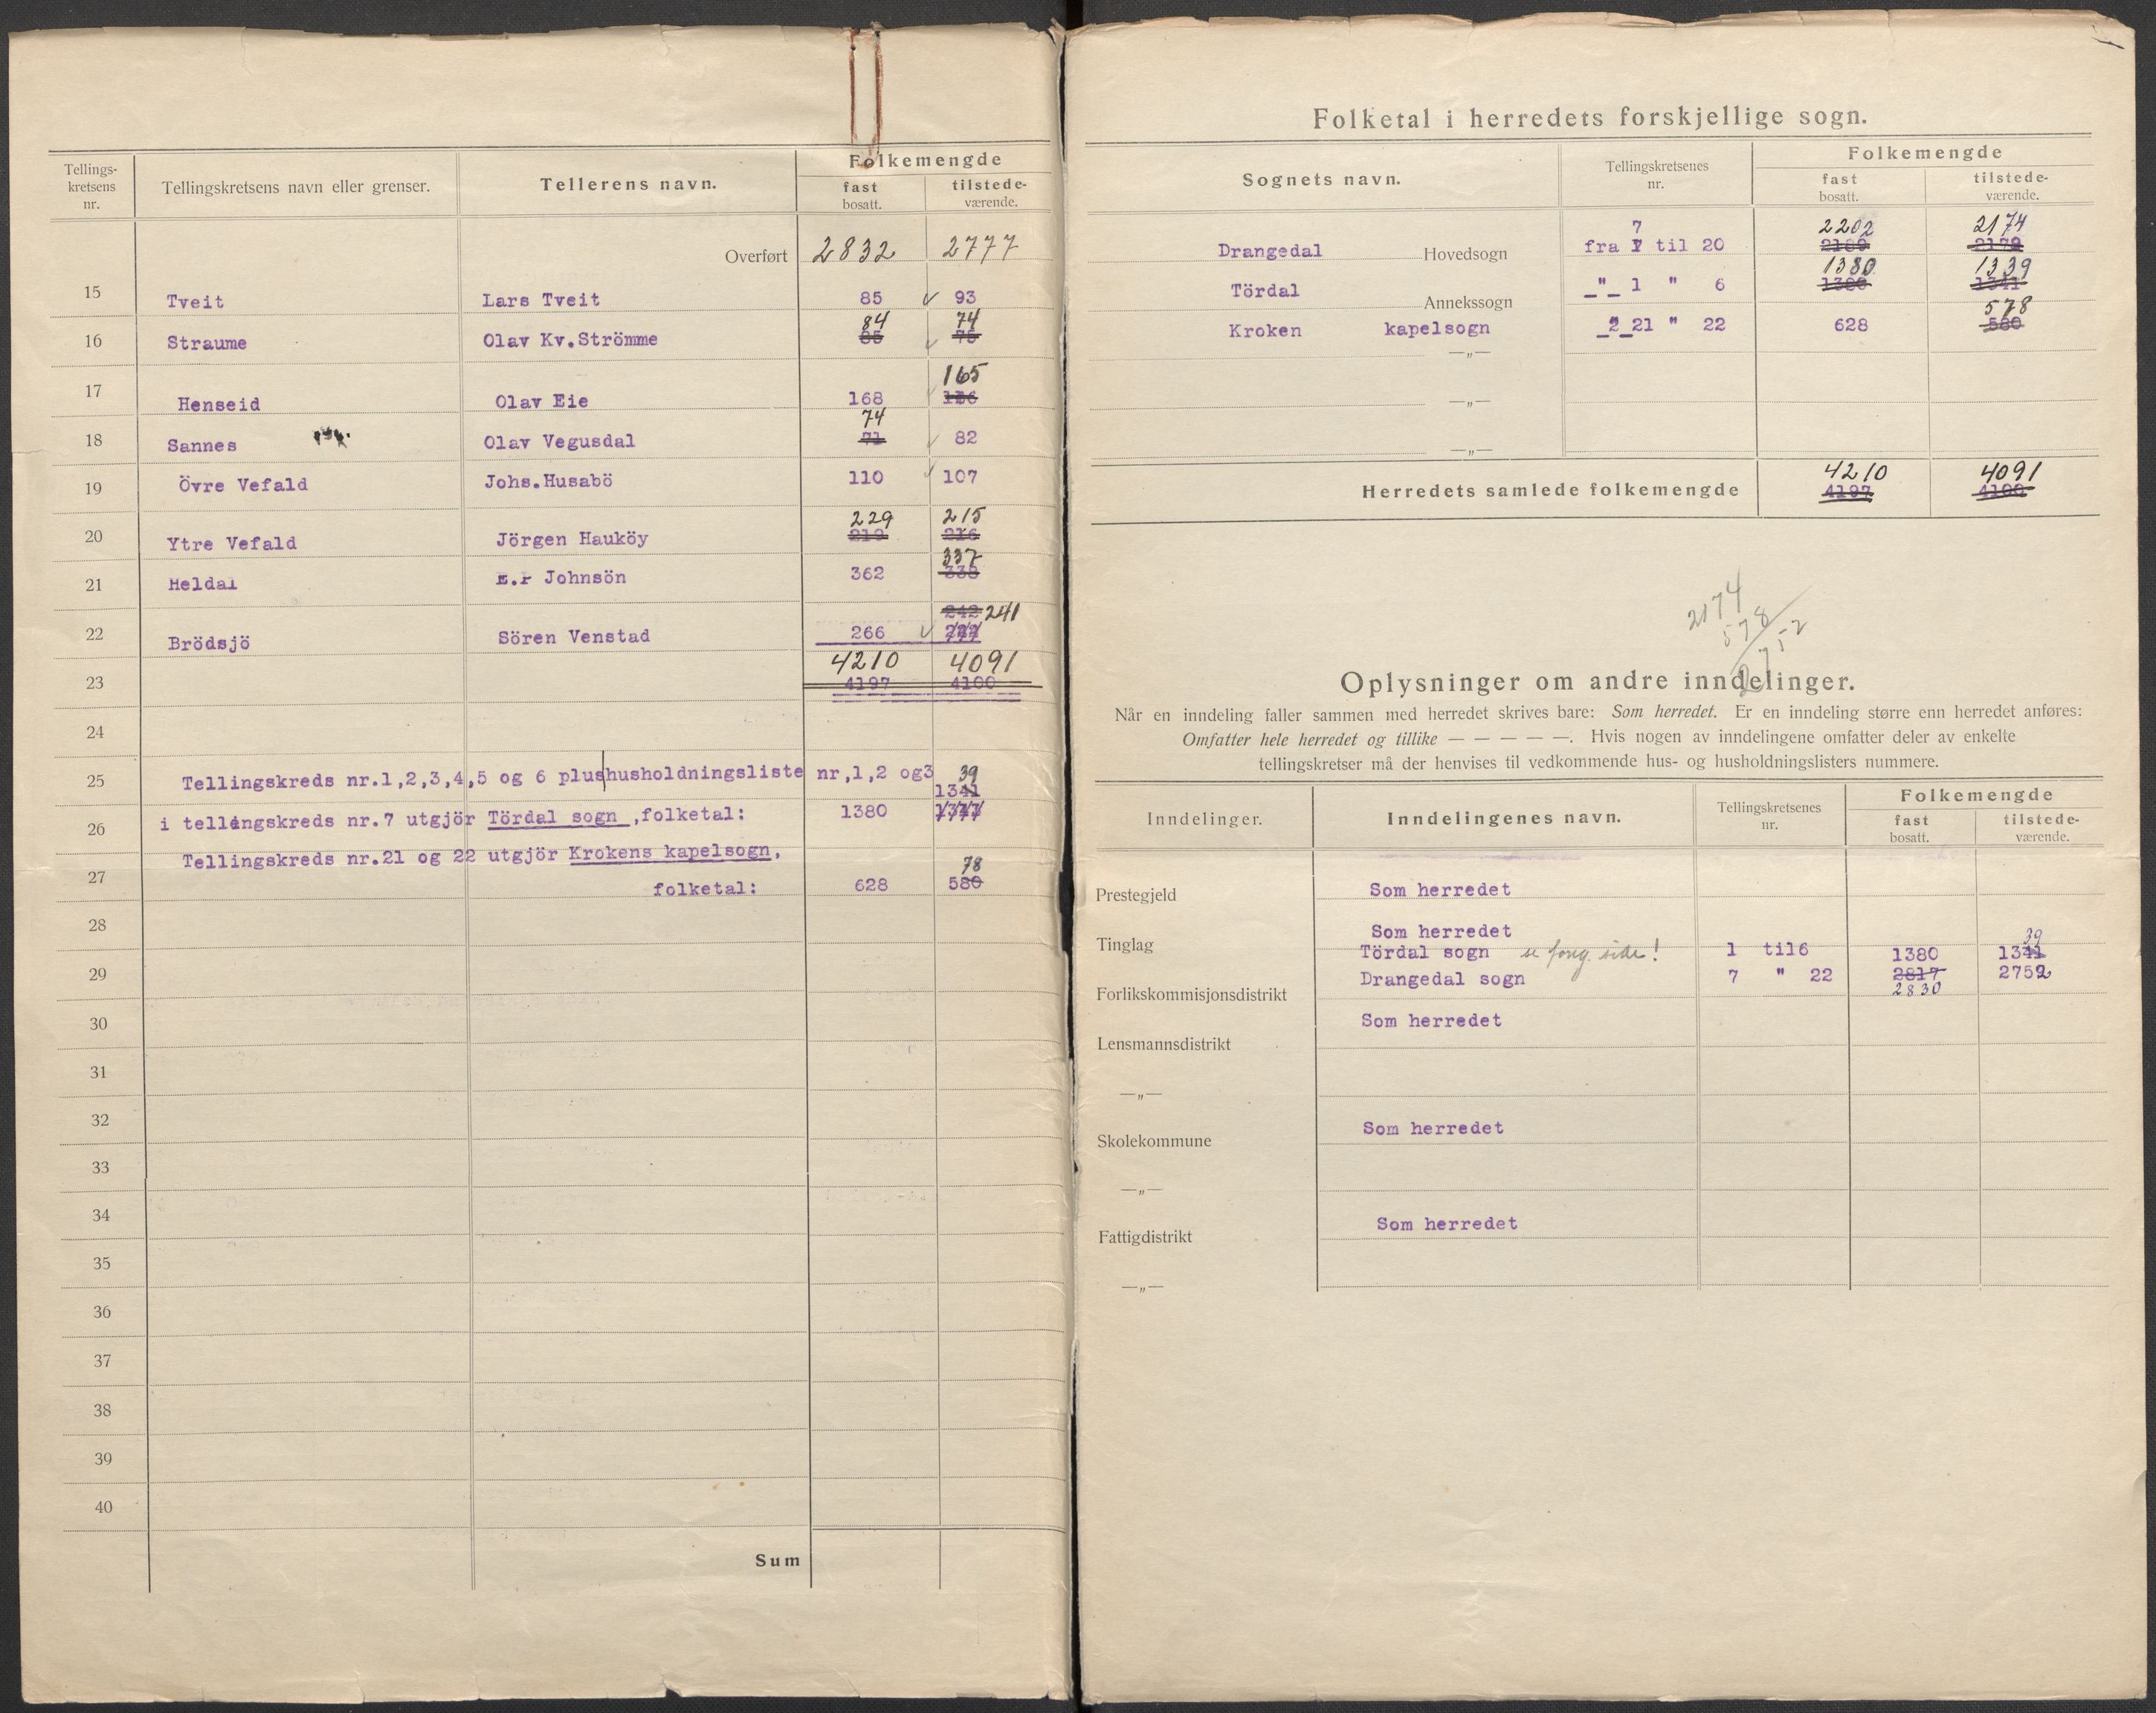 Tellings-kretsens nr. Tellingskretsens navn eller grenser. Tellerens navn. Folkemengde fast bosatt. tilstede-værende.
Overført 2832 2777
15 Tveit Lars Tveit 85 93
16 Straume Olav Kv.Strömme 84 74
85 75
17 Henseid Olav Eie 168 165
18 Sannes Olav Vegusdal 74 82
71
19 Övre Vefald Johs.Husabö 110 107
20 Ytre Vefald Jörgen Hauköy 229 215
219 216
21 Heldal Johnsön 362 337
338
22 Brödsjö Sören Venstad 266 242 241
4210 4091
23 4197 4100
24
25 Tellingskreds nr.1,2,3,4,5 og 6 plus husholdningsliste nr,1,2 og3 39
1341
26 i tellingskreds nr.7 utgjör Tördal sogn ,folketal: 1380
Tellingskreds nr.21 og 22 utgjör Krokens kapelsogn,
27 folketal: 628 580 78
28
29
30
31
32
33
34
35
36
37
38
39
40
Sum
Folketal i herredets forskjellige sogn.
Sognets navn. Tellingskretsenes nr. Folkemengde fast bosatt. tilstede-værende.
7 2202 2174
Drangedal Hovedsogn fra 1 til 20 2189 2179
1380 1339
Tördal Annekssogn _"_ 1 " 6 1380 1341
578
Kroken kapelsogn 21 " 22 628 580
—„—
—„—
—„—
4210 4091
Herredets samlede folkemengde 4197 4100
2174
578
2752
Oplysninger om andre inndelinger.
Når en inndeling faller sammen med herredet skrives bare: Som herredet. Er en inndeling større enn herredet anføres:
Omfatter hele herredet og tillike — — — — —. Hvis nogen av inndelingene omfatter deler av enkelte
tellingskretser må der henvises til vedkommende hus- og husholdningslisters nummere.
Inndelinger. Inndelingenes navn. Tellingskretsenes nr. Folkemengde fast bosatt. tilstede-værende.
Prestegjeld Som herredet
Tinglag Som herredet
39
Tördal sogn se forrig. side! 1 til6 1380 1341
Forlikskommisjonsdistrikt Drangedal sogn 7 " 22 2817 2752
2830
Lensmannsdistrikt Som herredet
—„—
Skolekommune Som herredet
—„—
Fattigdistrikt Som herredet
—„—